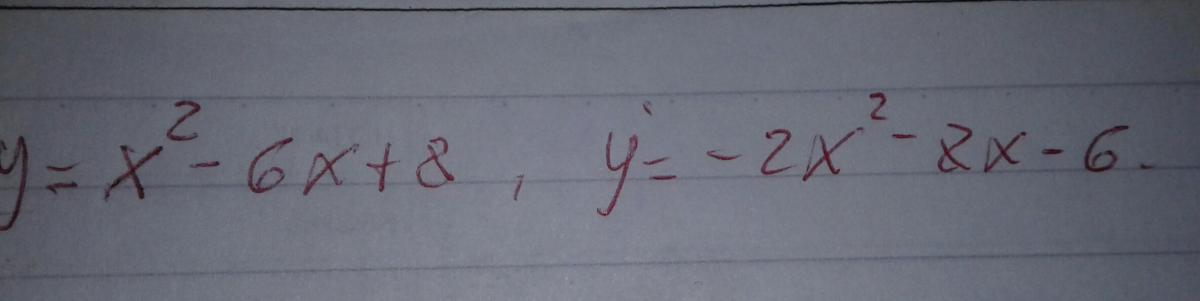 y = x² - 6x + 8 , y = -2x² - 8x - 6.